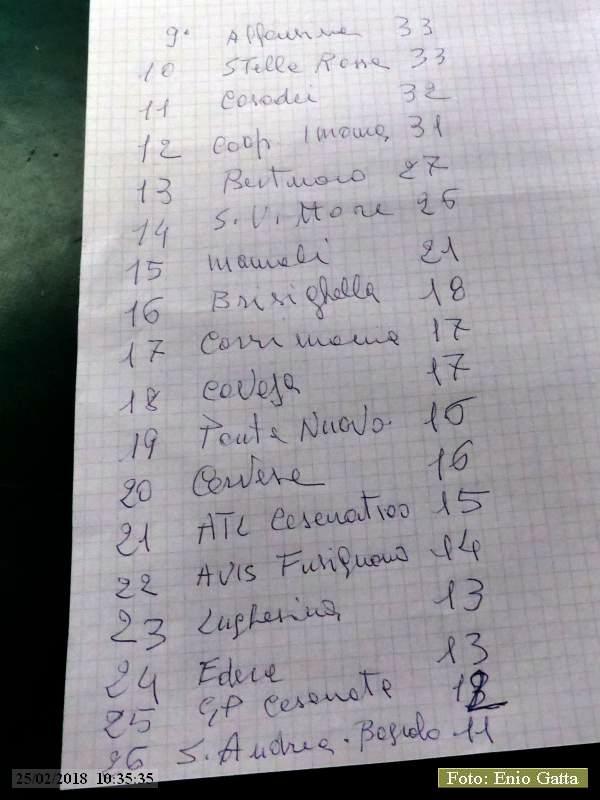 9. Alfonsine 33
10 Stella Rossa 33
11 Casadei 32
12 Coop Imama, 31
13 Bertinoro 27
14 S. Vittore 26
15 mameli 21
16 Brisighella 18
17 Corrimania 17
18 Caveja 17
19 Ponte Nuovo. 16
20 Cervese 16
21 ATL Cesenatico 15
22 AVIS Fusignano 14
23 Lughesina 13
24 Edera 13
25 GP Cesenate 12
26 S. Andrea. Bagnolo 11
25/02/2018 10:35:35
Foto: Enio Gatta